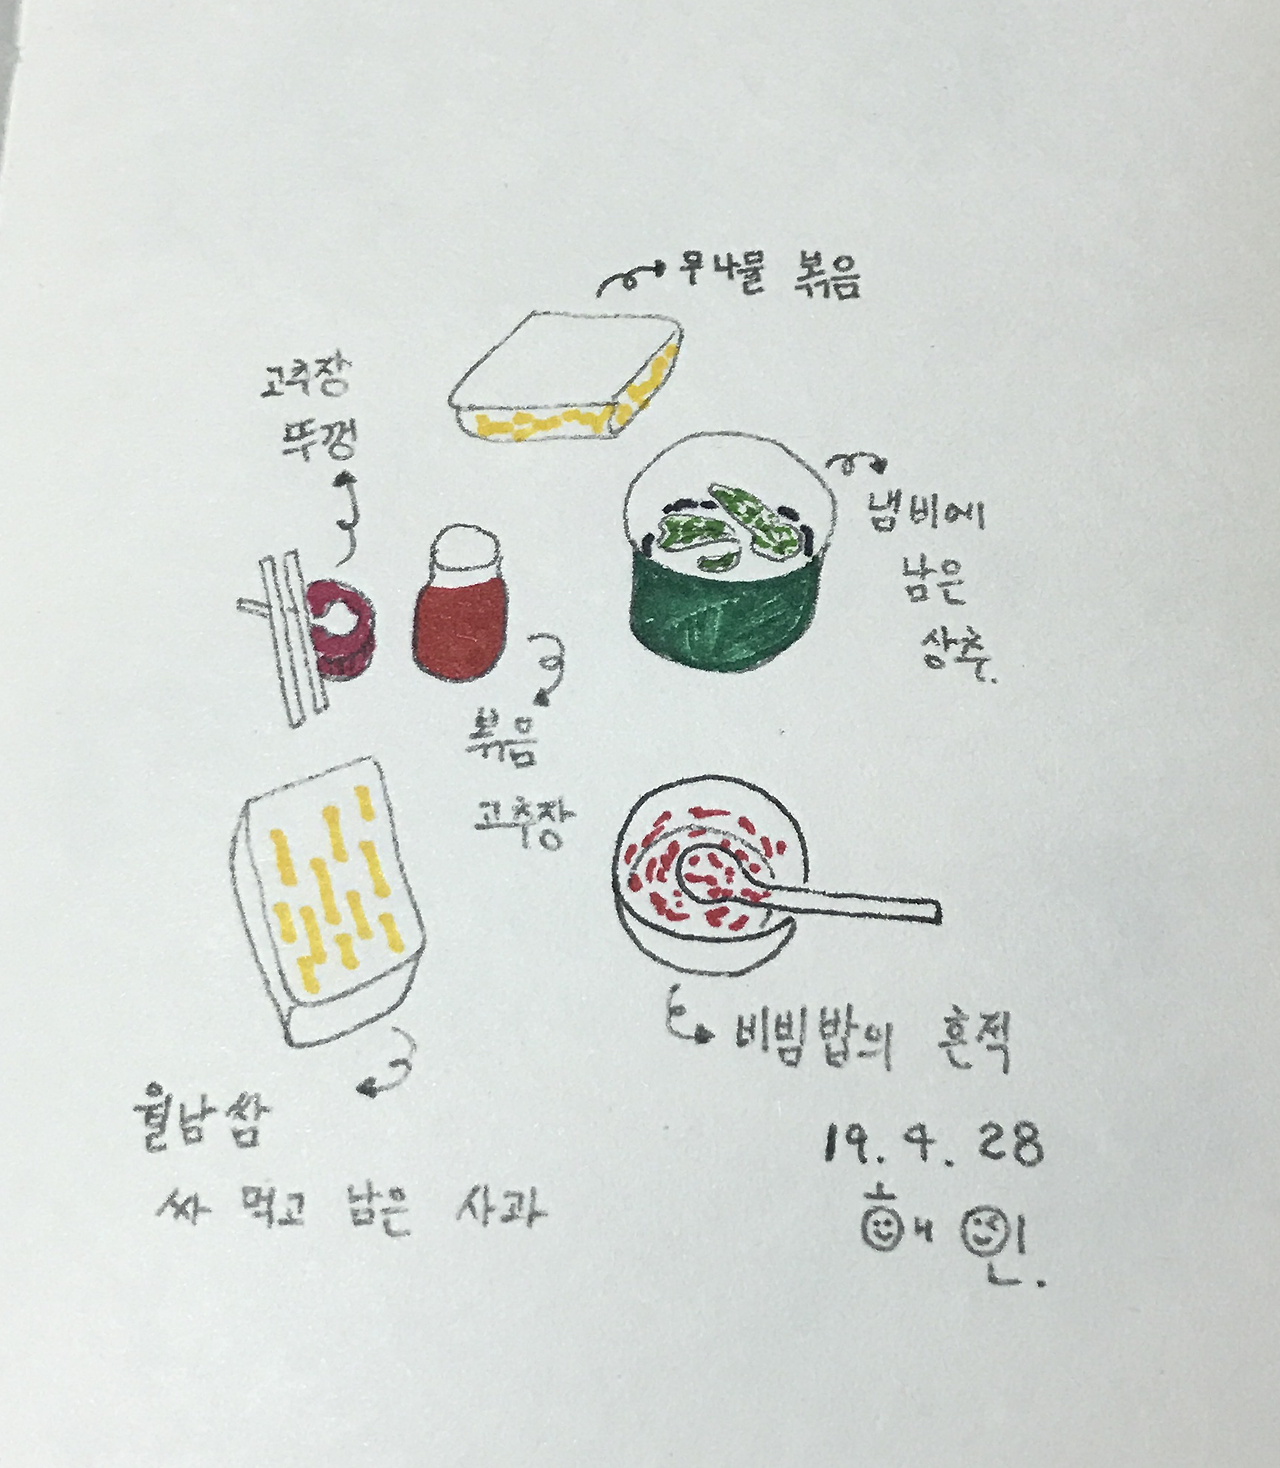 무나물 볶음
고추장
뚜껑
냄비에
남은
상추.
볶음
고추장
비빔밥의 흔적
월남쌈
싸 먹고 남은 사과
19. 4. 28
해인.